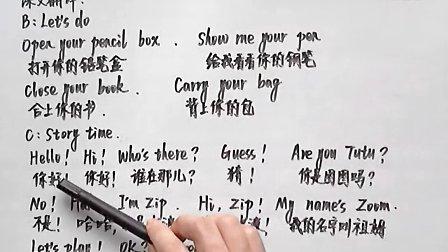 B: Let's do
Open your pencil box. Show me your pen
打开你的铅笔盒 给我看看你的钢笔
Close your book. Carry your bag
合上你的书. 背上你的包
C: Story time.
Hello! Hi! Who's there? Guess! Are you Tutu?
你好! 你好! 谁在那儿? 猜! 你是图图吗?
No! I'm Zip. Hi, Zip! My name's Zoom.
不是! 哈哈, 我的名字叫祖姆
Let's play! OK?